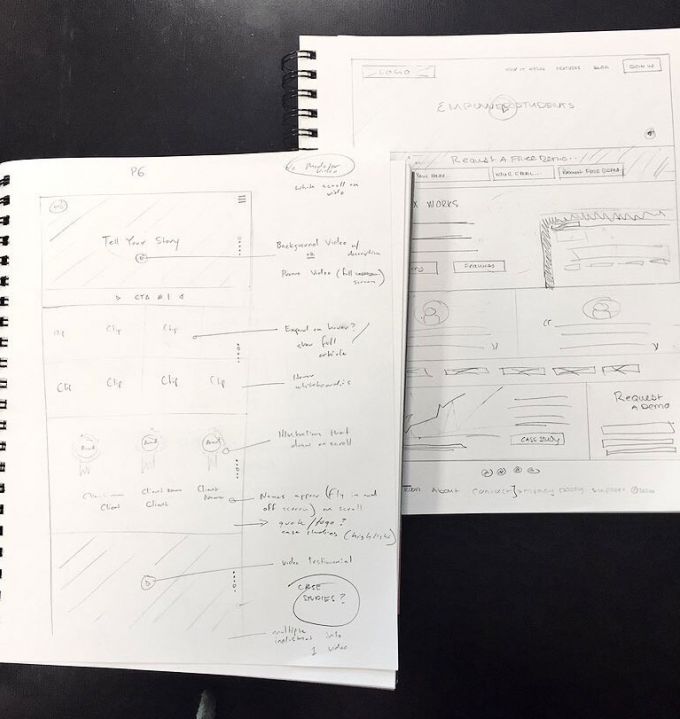 P6
Video
while scroll on
Tell Your Story
Background Video w/
description
or
Promo Video (full screen)
CTA #1
Clip
Clip
Clip
Expand on hover?
show full
article
Clip
Clip
Clip
Clip
Award
Award
Award
Illustrations that
draw on scroll
Client Name
Client
Client Name
Client
Client
Name
Names appear (fly in and
off screen) on scroll
quote / logo?
case studies (highlights)
Video testimonial
CASE
STUDIES?
multiple
into
1 video
LOGO
HOW IT WORKS
FEATURES
BLOG
SIGN IN
EMPOWER STUDENTS
REQUEST A FREE DEMO...
YOUR NAME
YOUR EMAIL...
REQUEST FREE DEMO
WORKS
FEATURES
CASE STUDY
REQUEST
A DEMO
About Contact Privacy Policy Support